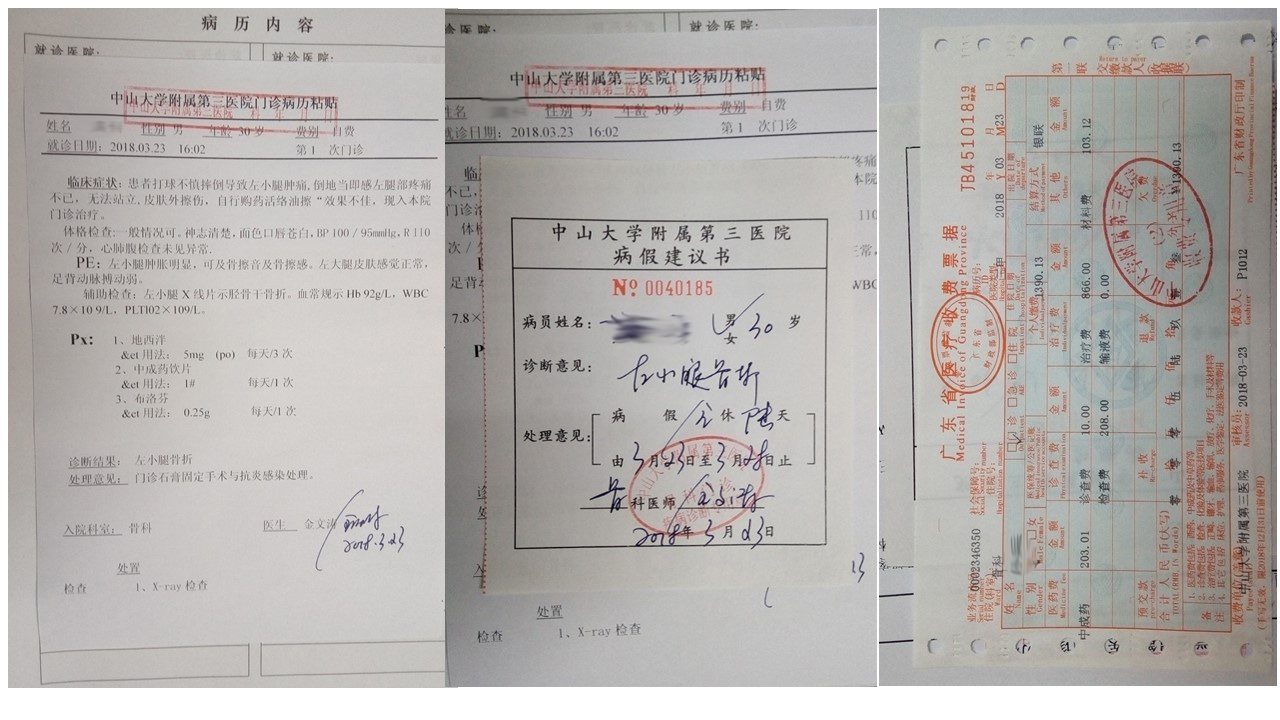 病 历 内 容
就诊医院: 就诊医院:
中山大学附属第三医院门诊病历粘贴
中山大学附属第三医院 科 年 月 日
姓名 性别 男 年龄 30 岁 费别 自费
就诊日期: 2018.03.23 16:02 第 1 次门诊
临床症状: 患者打球不慎摔倒导致左小腿肿痛, 倒地当即感左腿部疼痛
不已, 无法站立, 皮肤外擦伤, 自行购药活络油擦“效果不佳, 现入本院
门诊治疗。
体格检查: 一般情况可。神志清楚, 面色口唇苍白, BP 100 / 95mmHg, R 110
次 / 分, 心肺腹检查未见异常.
PE: 左小腿肿胀明显, 可及骨擦音及骨擦感。左大腿皮肤感觉正常,
足背动脉搏动弱。
辅助检查: 左小腿 X 线片示胫骨干骨折。血常规示 Hb 92g/L, WBC
7.8×10 9/L, PLTl02×109/L.
Px: 1、地西泮
&ct 用法: 5mg (po) 每天/3 次
2、中成药饮片
&ct 用法: 1# 每天/1 次
3、布洛芬
&ct 用法: 0.25g 每天/1 次
诊断结果: 左小腿骨折
处理意见: 门诊石膏固定手术与抗炎感染处理。
入院科室: 骨科 医生 金文涛
2018.3.23
处置
检查 1、X-ray 检查
中山大学附属第三医院门诊病历粘贴
中山大学附属第三医院 科 年 月 日
姓名 性别 男 年龄 30 岁 费别 自费
就诊日期: 2018.03.23 16:02 第 1 次门诊
中山大学附属第三医院
病假建议书
№ 0040185
病员姓名: 男 女 30 岁
诊断意见: 左小腿骨折
处理意见: 病 假 全 休 陆 天
由 3 月 23 日至 3 月 28 日止
骨 科医师
2018 年 3 月 23 日
处置
检查 1、X-ray 检查
广东省医疗收费票据
Medical Invoice of Guangdong Province
JB45101819
2018 年 Y 03 月 M 23 日 D
业务流水号: 0002346350
社会保障号:
骨科
医药费 金额 诊查费 金额 治疗费 金额 其他 金额
中成药 203.01 诊查费 10.00 治疗费 866.00 材料费 103.12
检查费 208.00 输液费 0.00
个人缴费 1390.13
结算方式 银联
预交款 补收 退款 欠费
合计人民币(大写)
¥1390.13
中山大学附属第三医院
审核员: 2018-03-23
收款人: P1012
广东省财政厅印制